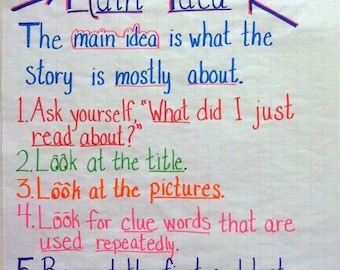 Main Idea
The main idea is what the
story is mostly about.
1. Ask yourself, "What did I just
read about?"
2. Look at the title.
3. Look at the pictures.
4. Look for clue words that are
used repeatedly.
5.